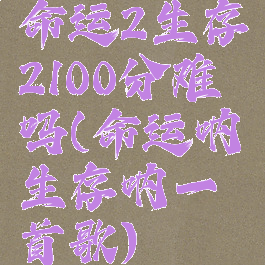 命运2生存
2100分难
吗(命运呐
生存呐一
首歌)